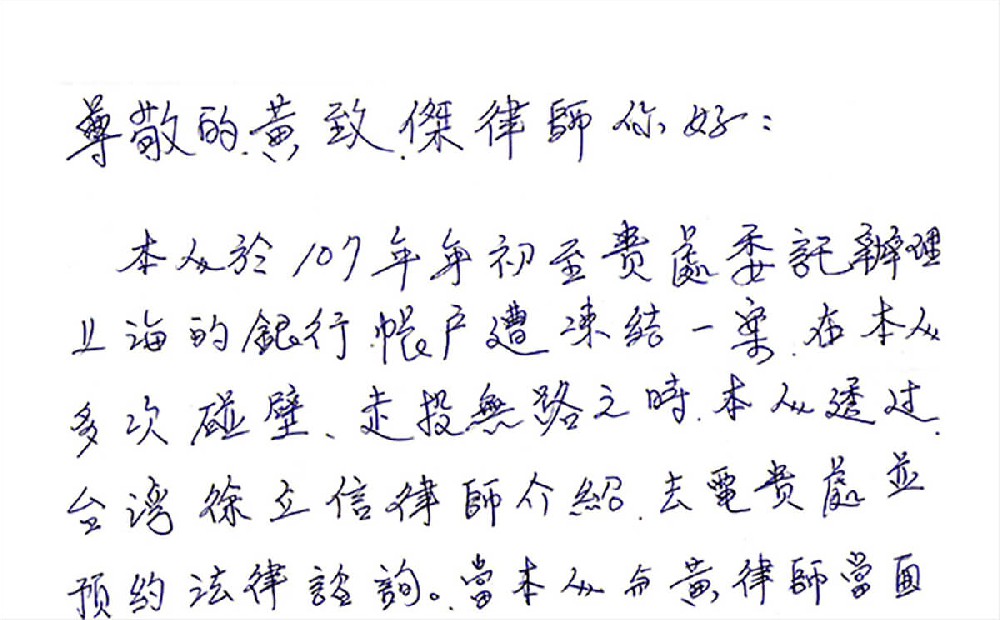 尊敬的黃致傑律師你好：
本人於107年年初至貴處委託辦理
上海的銀行帳戶遭凍結一案.在本人
多次碰壁、走投無路之時.本人透过.
台灣徐立信律師介紹.去電貴處並
預約法律諮詢。當本人与黃律師當面